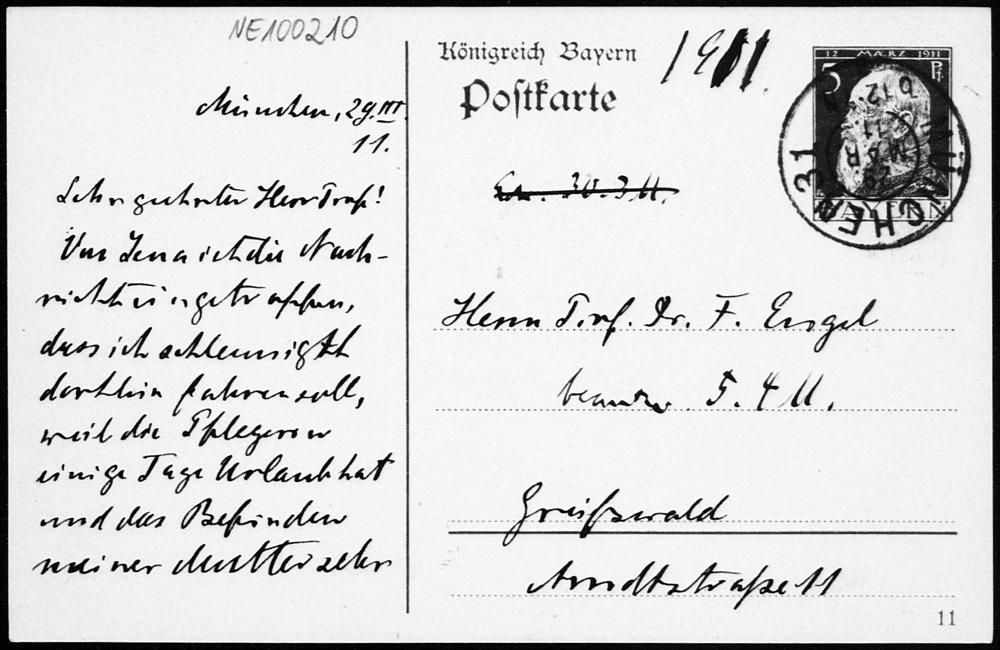 NE100210
München, 29. III.
11.
Sehr geehrter Herr Prof!
Von Jena ist die Nach-
richt eingetroffen,
dass ich schleunigst
dorthin fahren soll,
weil die Pflegerin
einige Tage Urlaub hat
und das Befinden
meiner Mutter sehr
Königreich Bayern
Postkarte
1911.
12 MÄRZ 1911
5 Pf.
BAYERN
MÜNCHEN 31
29. MAR 11
30.3.11.
Herrn Prof. Dr. F. Engel
beantw. 5.4.11.
Greifswald
Arndtstraße 11
11